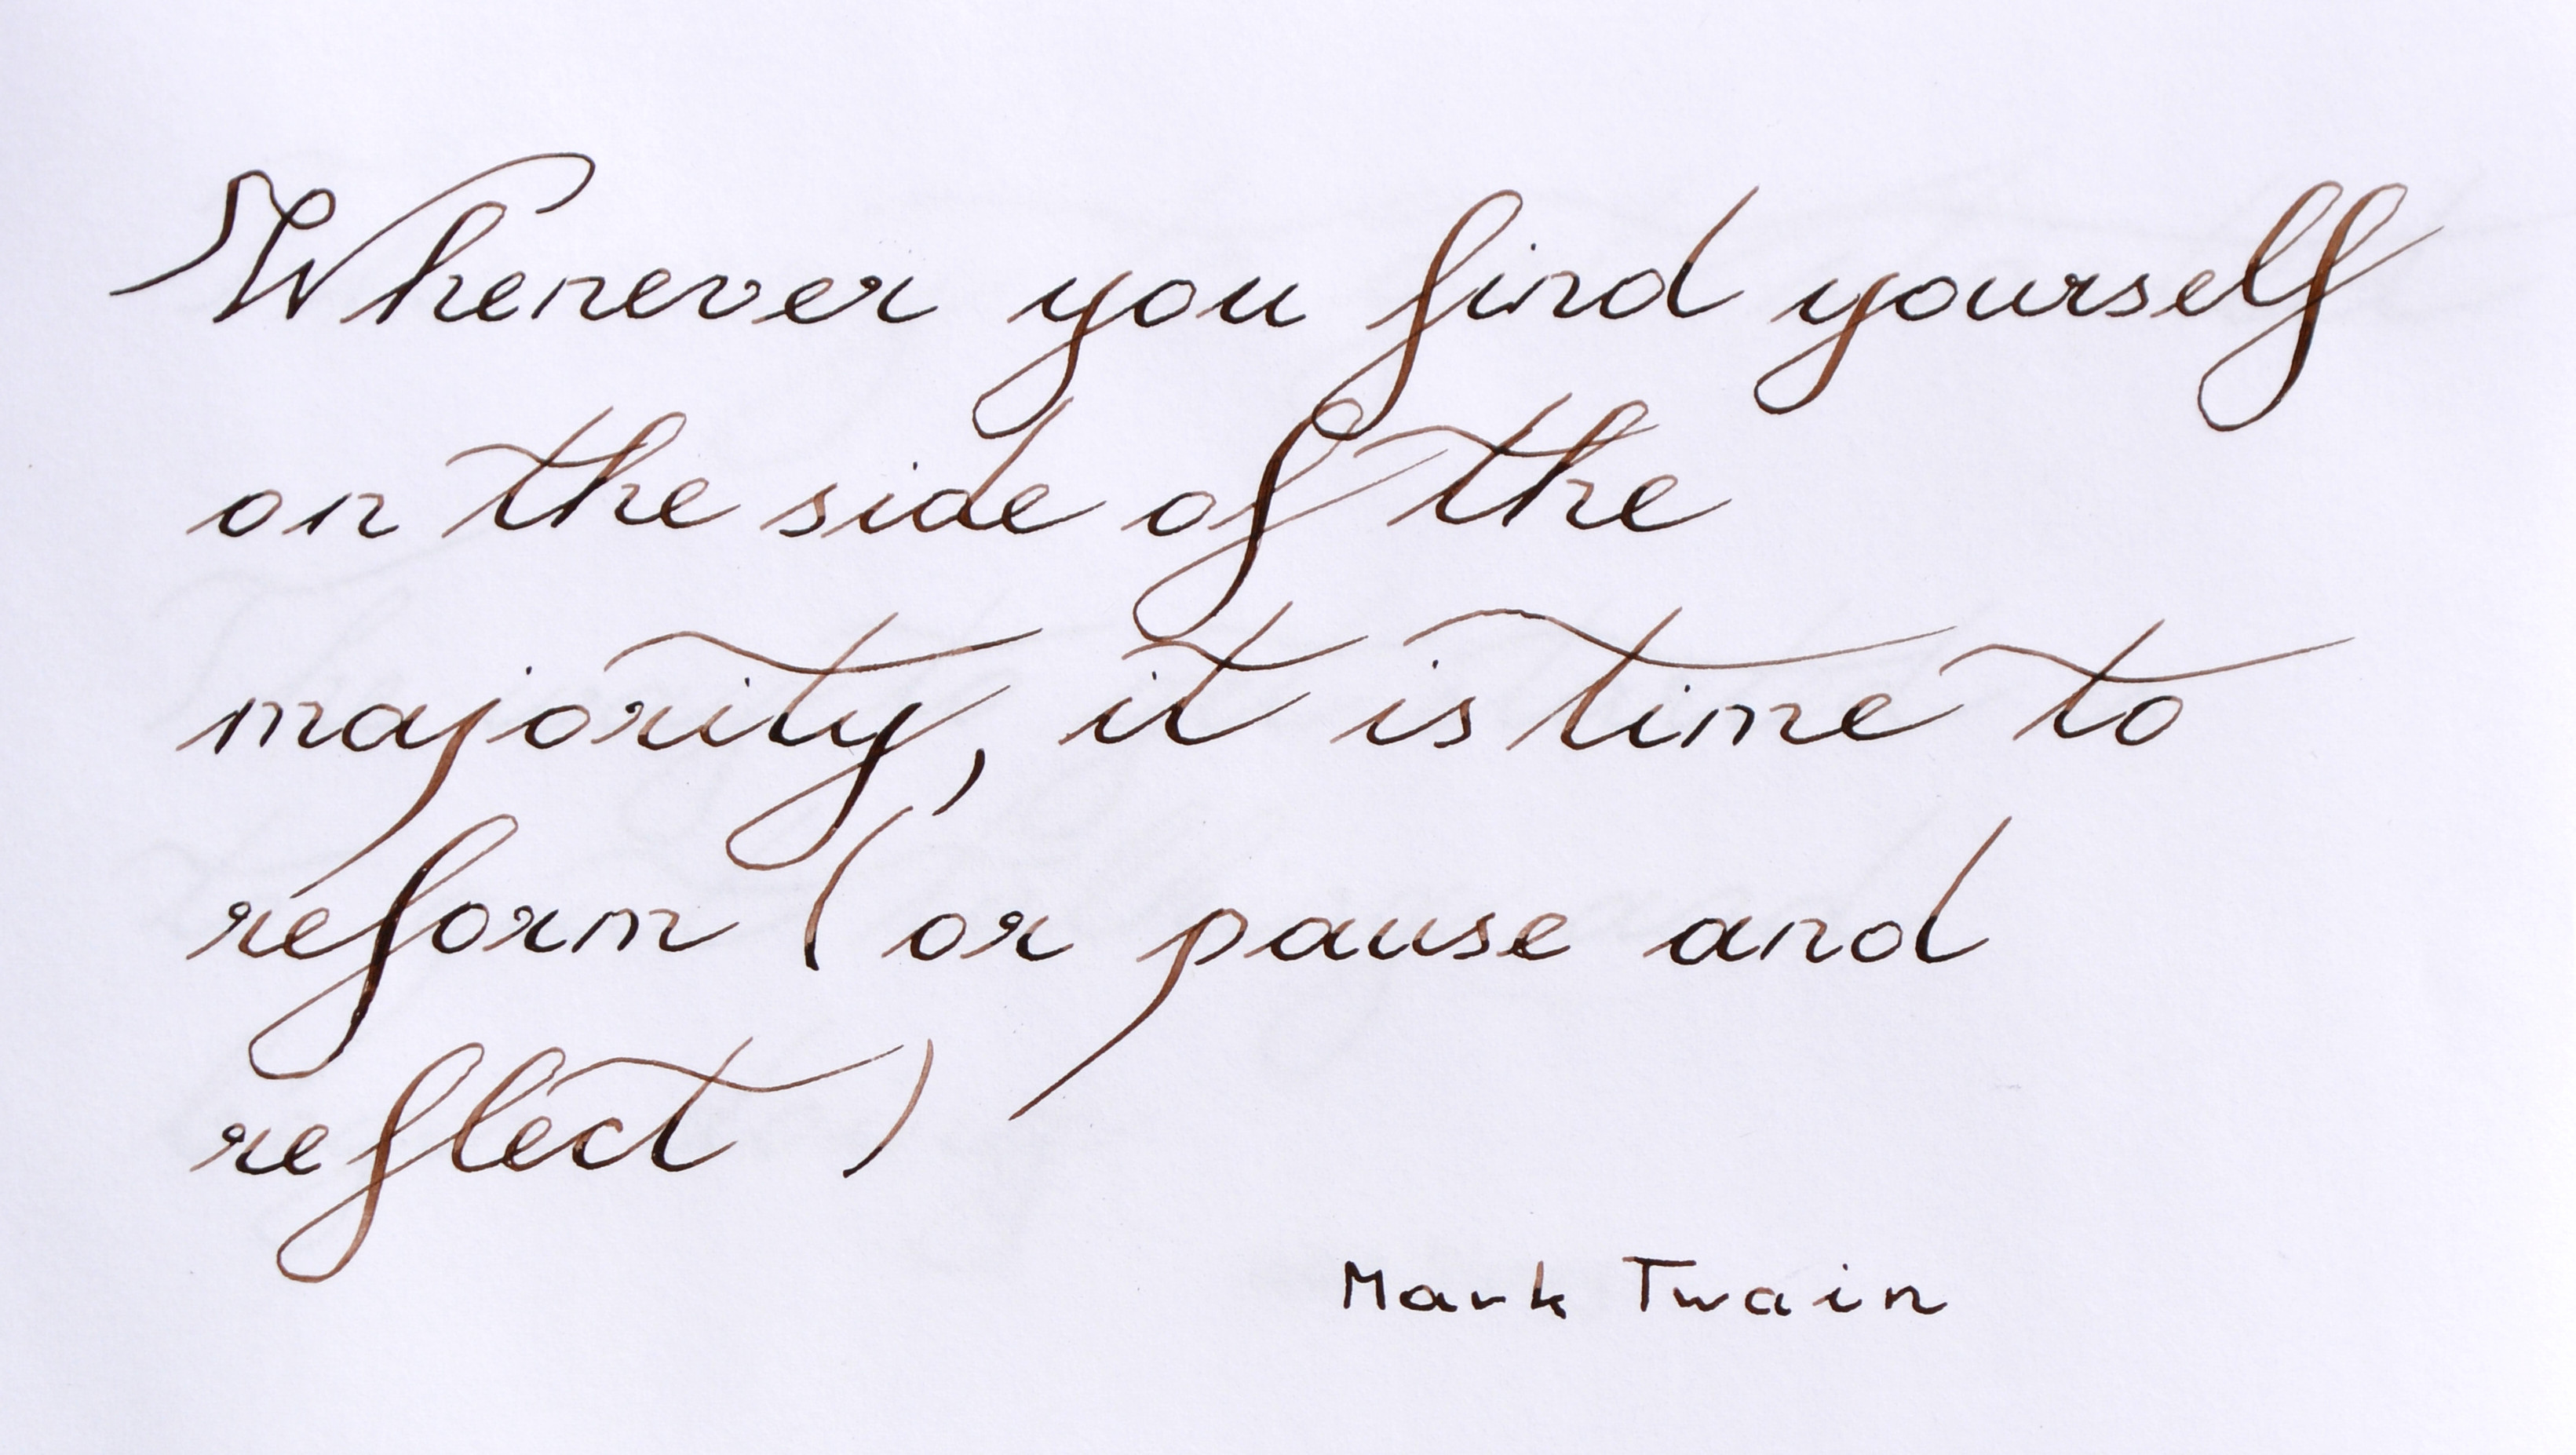 Whenever you find yourself
on the side of the
majority, it is time to
reform (or pause and
reflect)
Mark Twain